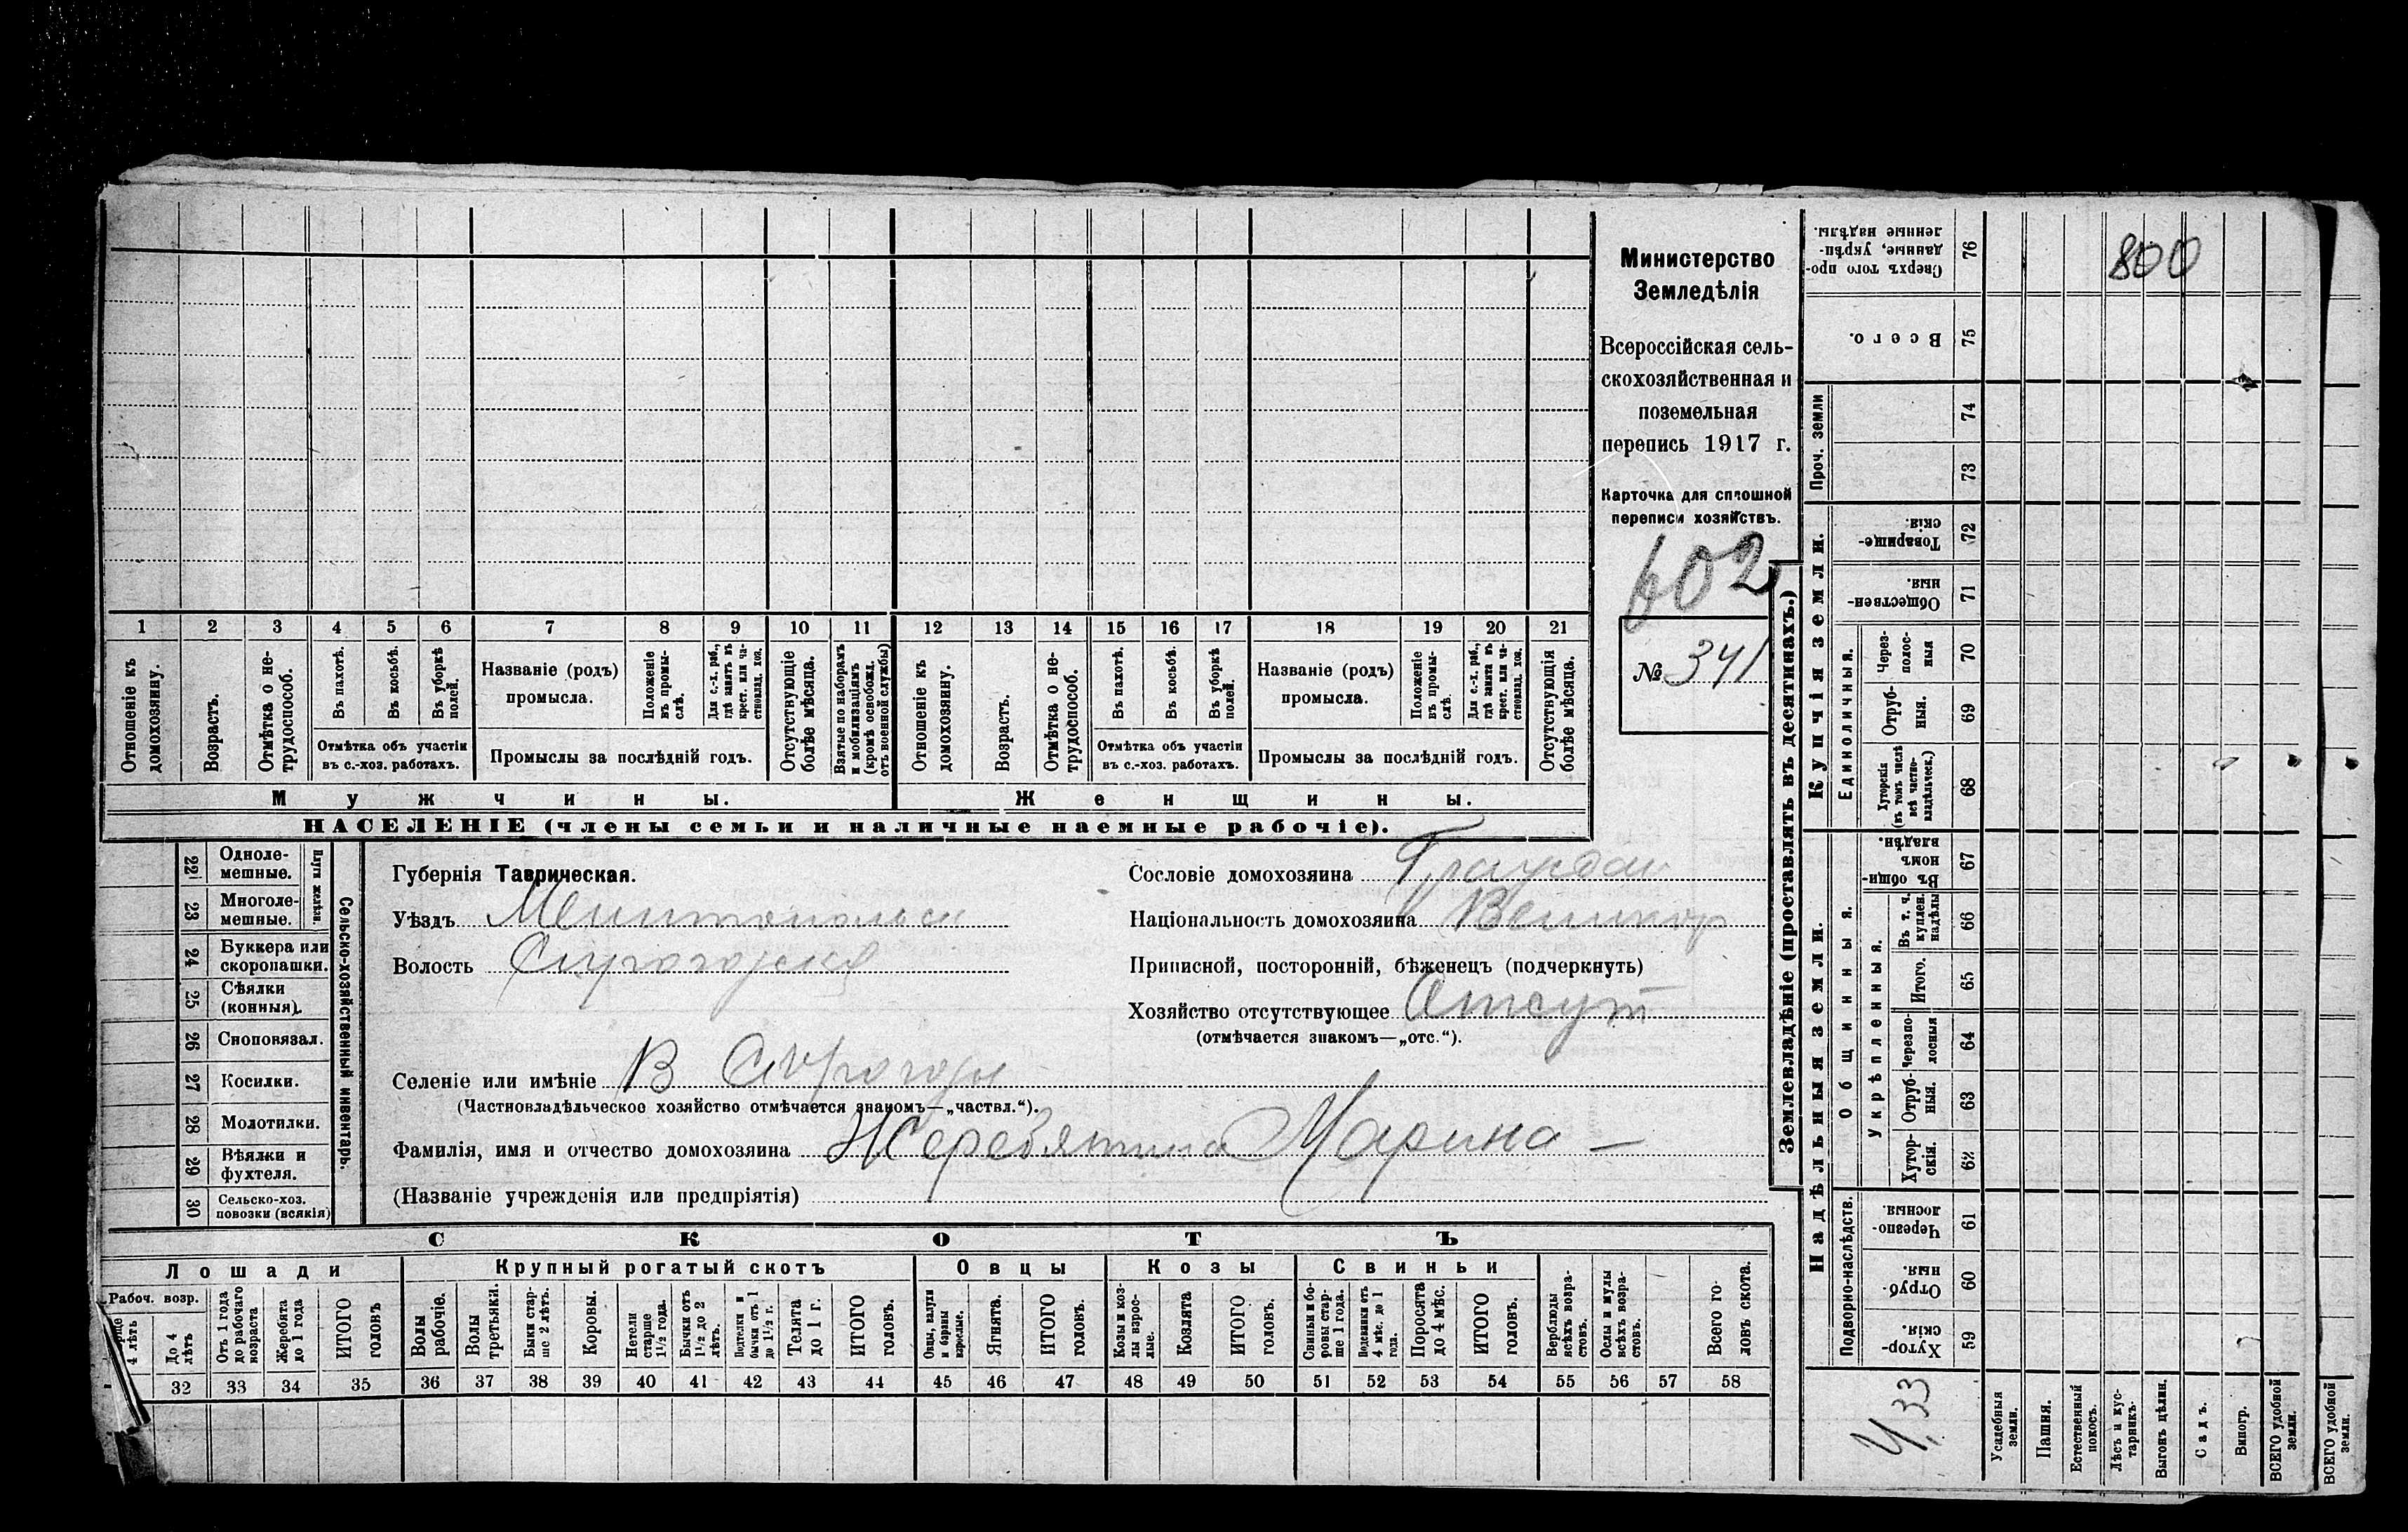 Министерство
Земледѣлія
Всероссійская сель-
скохозяйственная и
поземельная
перепись 1917 г.
Карточка для сплошной
переписи хозяйствъ.
602
№ 341
1 2 3 4 5 6 7 8 9 10 11 12 13 14 15 16 17 18 19 20 21
Отношеніе къ домохозяину.
Возрастъ.
Отмѣтка о не-трудоспособ.
Въ пахотѣ.
Въ косьбѣ.
Въ уборкѣ полей.
Отмѣтка объ участіи
въ с.-хоз. работахъ.
Названіе (родъ)
промысла.
Положеніе въ промы-слѣ.
Для с.-х. раб., гдѣ занятъ въ крест. или ча-стновлад. хоз.
Промыслы за послѣдній годъ.
Отсутствующіе болѣе мѣсяца.
Взятые по наборамъ и мобилизаціямъ (кромѣ освобожд. отъ военной службы)
Отношеніе къ домохозяину.
Возрастъ.
Отмѣтка о не-трудоспособ.
Въ пахотѣ.
Въ косьбѣ.
Въ уборкѣ полей.
Отмѣтка объ участіи
въ с.-хоз. работахъ.
Названіе (родъ)
промысла.
Положеніе въ промы-слѣ.
Для с.-х. раб., гдѣ занята въ крест. или ча-стновлад. хоз.
Промыслы за послѣдній годъ.
Отсутствующія болѣе мѣсяца.
Мужчины.
Женщины.
НАСЕЛЕНІЕ (члены семьи и наличные наемные рабочіе).
Сельско-хозяйственный инвентарь.
Плуги желѣзн.
22 Одноле-мешные.
23 Многоле-мешные.
24 Буккера или скоропашки.
25 Сѣялки (конныя).
26 Сноповязал.
27 Косилки.
28 Молотилки.
29 Вѣялки и фухтеля.
30 Сельско-хоз. повозки (всякія)
Губернія Таврическая.
Уѣздъ Мелитопольск
Волость
Селеніе или имѣніе В
(Частновладѣльческое хозяйство отмѣчается знакомъ—„частвл.“).
Фамилія, имя и отчество домохозяина Жеребятина Марина —
(Названіе учрежденія или предпріятія)
Сословіе домохозяина Граждан
Національность домохозяина Великор
Приписной, посторонній, бѣженецъ (подчеркнуть)
Хозяйство отсутствующее Отсут
(отмѣчается знакомъ—„отс.“).
СКОТЪ
Лошади
Крупный рогатый скотъ
Овцы
Козы
Свиньи
Рабоч. возр.
4 лѣтъ
До 4 лѣтъ
Отъ 1 года до рабочаго возраста
Жеребята до 1 года
ИТОГО головъ
Волы рабочіе.
Волы третьяки.
Быки стар-ше 2 лѣтъ.
Коровы.
Нетели старше 1½ года.
Бычки отъ 1½ до 2 лѣтъ.
Подтелки и бычки отъ 1 до 1½ г.
Телята до 1 г.
ИТОГО головъ.
Овцы, валухи и бараны взрослые.
Ягнята.
ИТОГО головъ.
Козы и коз-лы взрос-лые.
Козлята
ИТОГО головъ.
Свиньи и бо-ровы стар-ше 1 года.
Подсвинки отъ 4 мѣс. до 1 года.
Поросята до 4 мѣс.
ИТОГО головъ.
Верблюды всѣхъ возра-стовъ.
Ослы и мулы всѣхъ возра-стовъ.
Всего го-ловъ скота.
32 33 34 35 36 37 38 39 40 41 42 43 44 45 46 47 48 49 50 51 52 53 54 55 56 57 58
Землевладѣніе (проставлять въ десятинахъ.)
Надѣльныя земли.
Купчія земли.
Проч. земли
Подворно-наслѣдств.
Общинныя.
Укрѣпленныя.
Единоличныя.
59 Хутор-скія.
60 Отруб-ныя.
61 Черезпо-лосныя.
62 Хутор-скія.
63 Отруб-ныя.
64 Черезпо-лосныя
65 Итого.
66 Въ т. ч. куплен. надѣлы
67 Въ общи-номъ владѣн.
68 Хуторскія (въ томъ числѣ всѣ частно-владѣльческ.)
69 Отруб-ныя.
70 Через-полос-ныя
71 Обществен-ныя.
72 Товарище-скія.
73
74
75 Всего.
76 Сверхъ того про-данные, укрѣп-ленные надѣлы.
800
Усадебныя земли.
Пашня.
Естественный покосъ.
Лѣсъ и кус-тарникъ.
Выгонъ цѣлин.
Садъ.
Виногр.
ВСЕГО удобной земли.
ВСЕГО удобной земли.